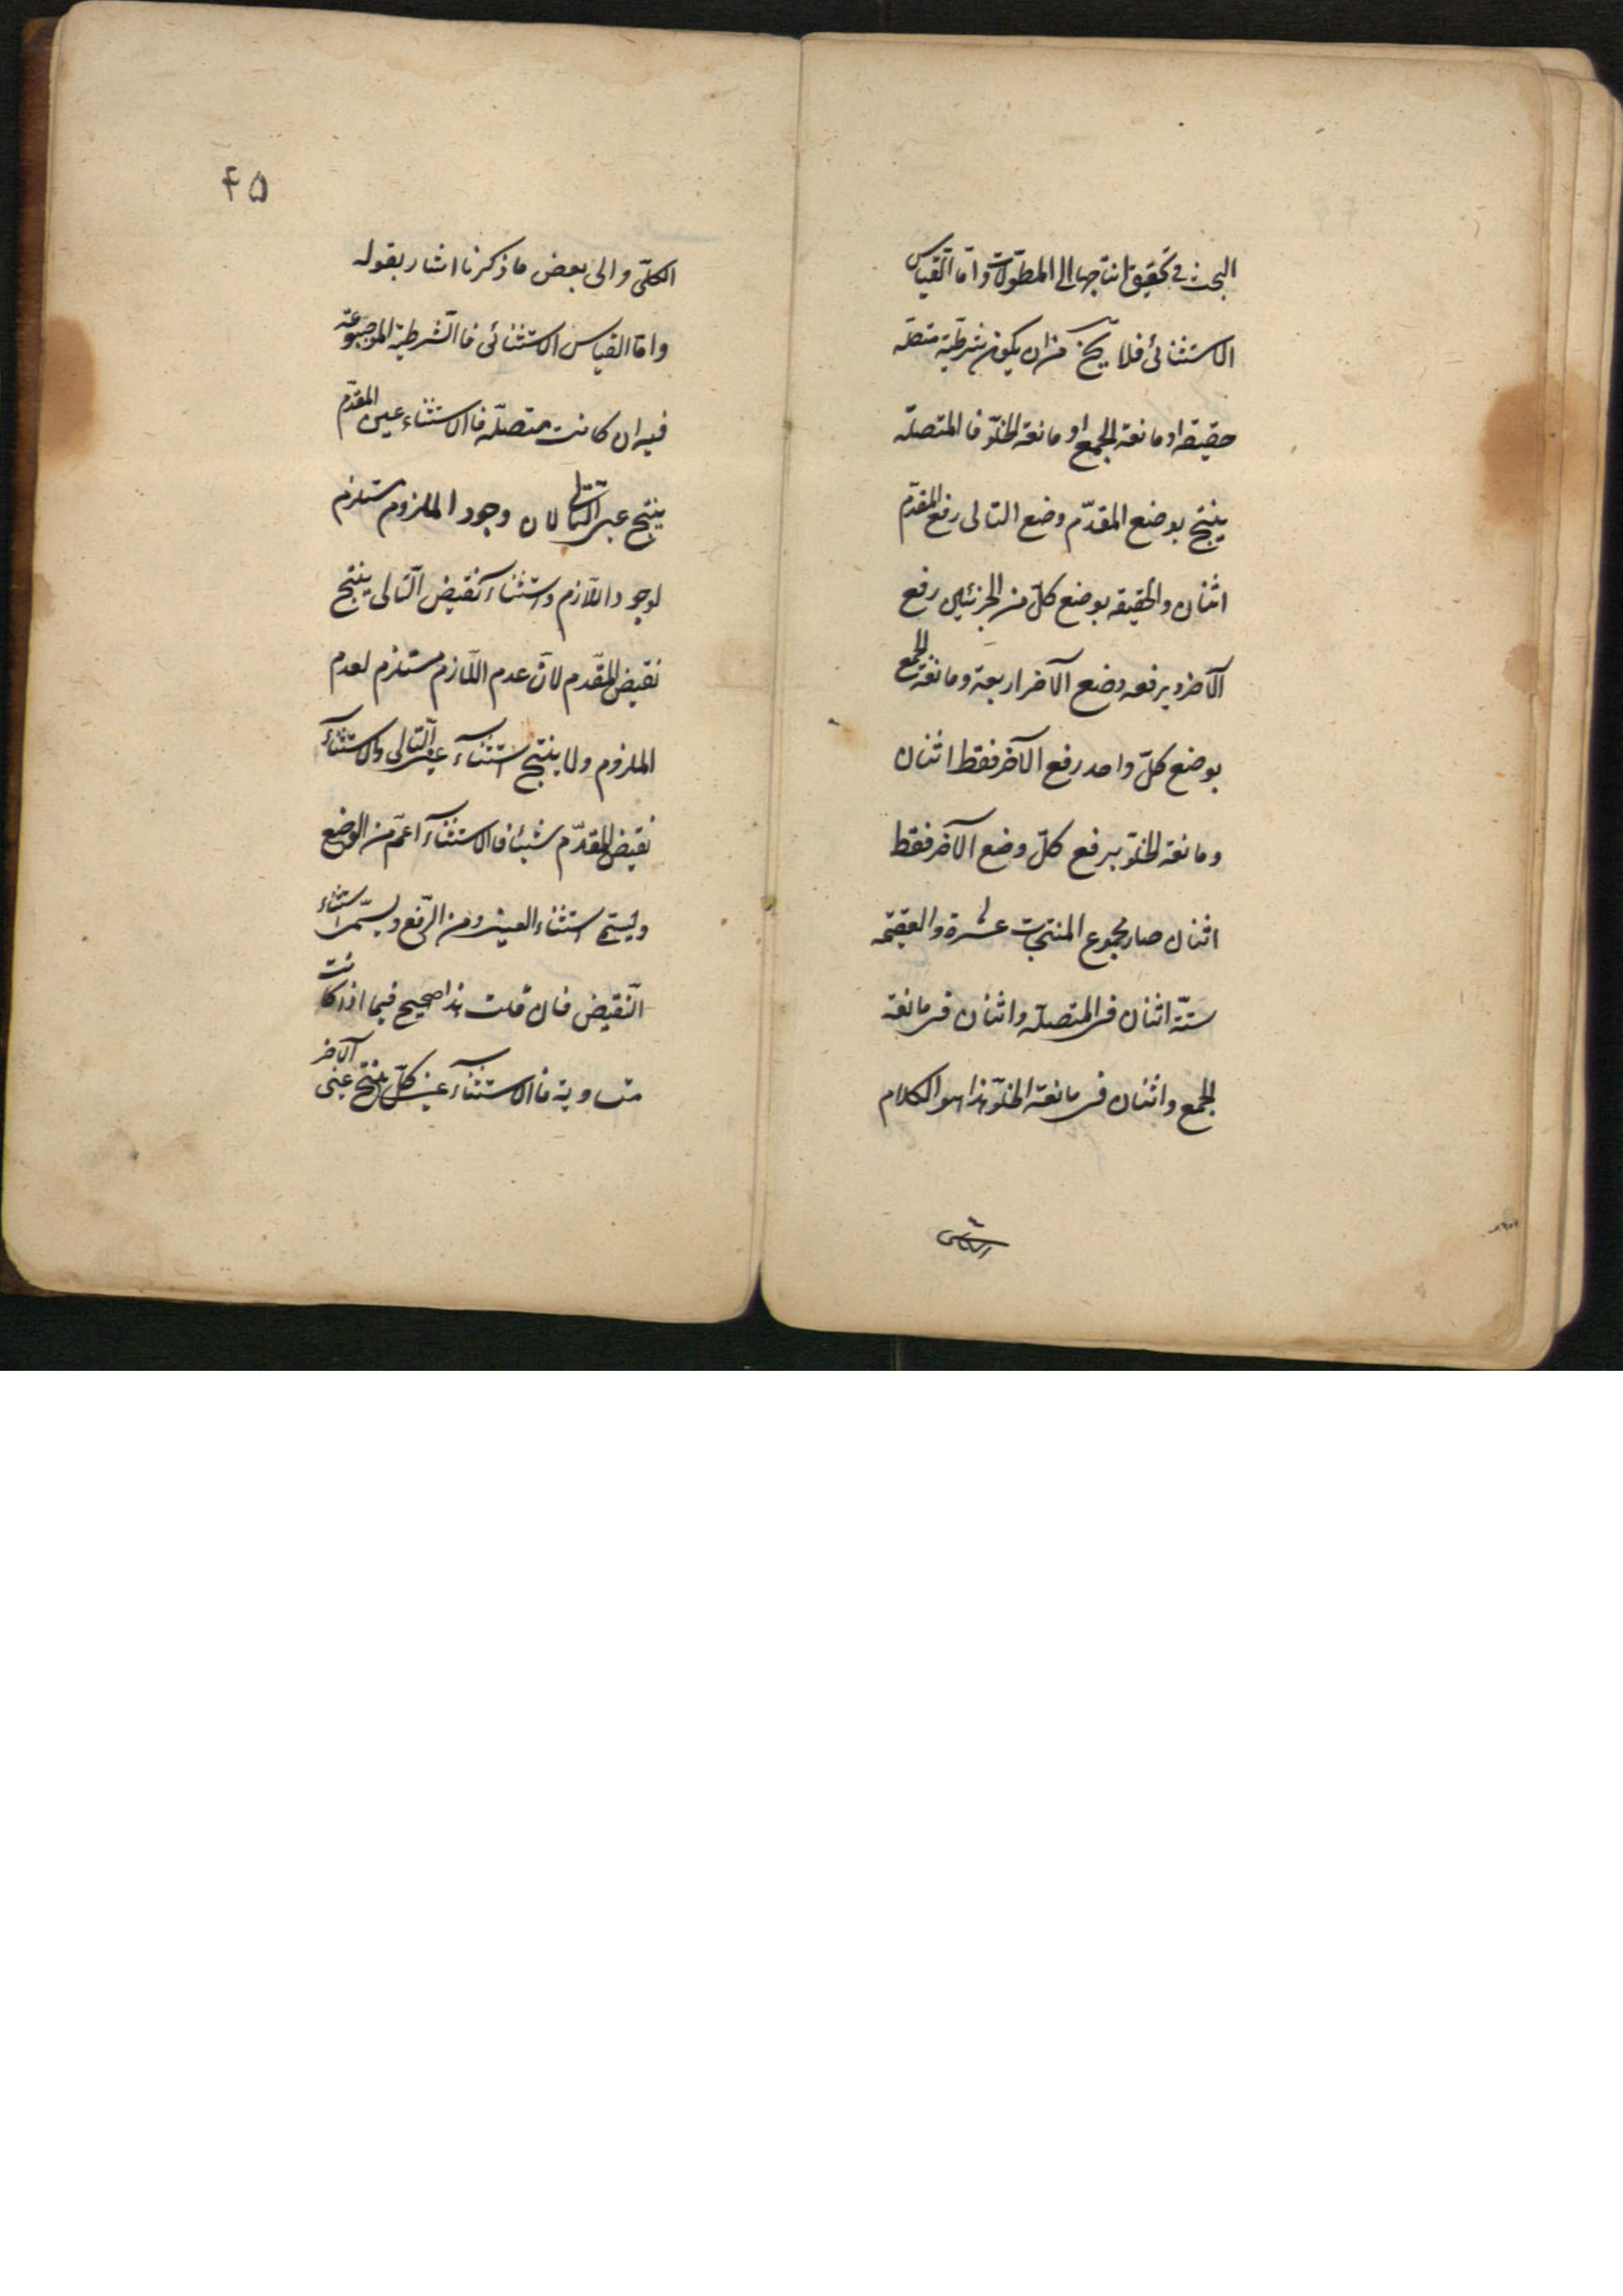 البحث فى تحقيق انتاجها الى المطوّلات وامّا القياس
الاستثنائى فلا يخ من ان يكون شرطيّة متصلّة
حقيقة او مانعة الجمع او مانعة الخلوّ فا المتصلّة
ينتج بوضع المقدّم وضع التالى رفع المقدّم
اثنان والحقيقة بوضع كلّ من الجزئين رفع
الآخر وبرفعه وضع الآخر اربعة ومانعة الجمع
بوضع كلّ واحد رفع الآخر فقط اثنان
ومانعة الخلوّ برفع كلّ وضع الآخر فقط
اثنان صار مجموع المنتجات عشرة والعقيمة
ستّة اثنان فى المتصلّة واثنان فى مانعة
الجمع واثنان فى مانعة الخلوّ هذا هو الكلام
٤۵
الكلّى والى بعض ما ذكرنا اشار بقوله
وامّا القياس الاستثنائى فا الشّرطيّة الموضوعة
فيه ان كانت متصلّة فا الاستثناء عين المقدّم
ينتج عين التالى لان وجود الملزوم مستلزم
لوجود اللّازم واستثناء نقيض التّالى ينتج
نقيض المقدّم لانّ عدم اللّازم مستلزم لعدم
الملزوم ولا ينتج استثناء عين التّالى والاستثناء
نقيض المقدّم شيئا فا الاستثناء اعمّ من الوضع
ويسمّى استثناء العين ومن الرّفع ويسمّى استثناء
النّقيض فان قلت هذا صحيح فيما اذا كانت
متساوية فا الاستثناء عين كلّ ينتج عين الآخر